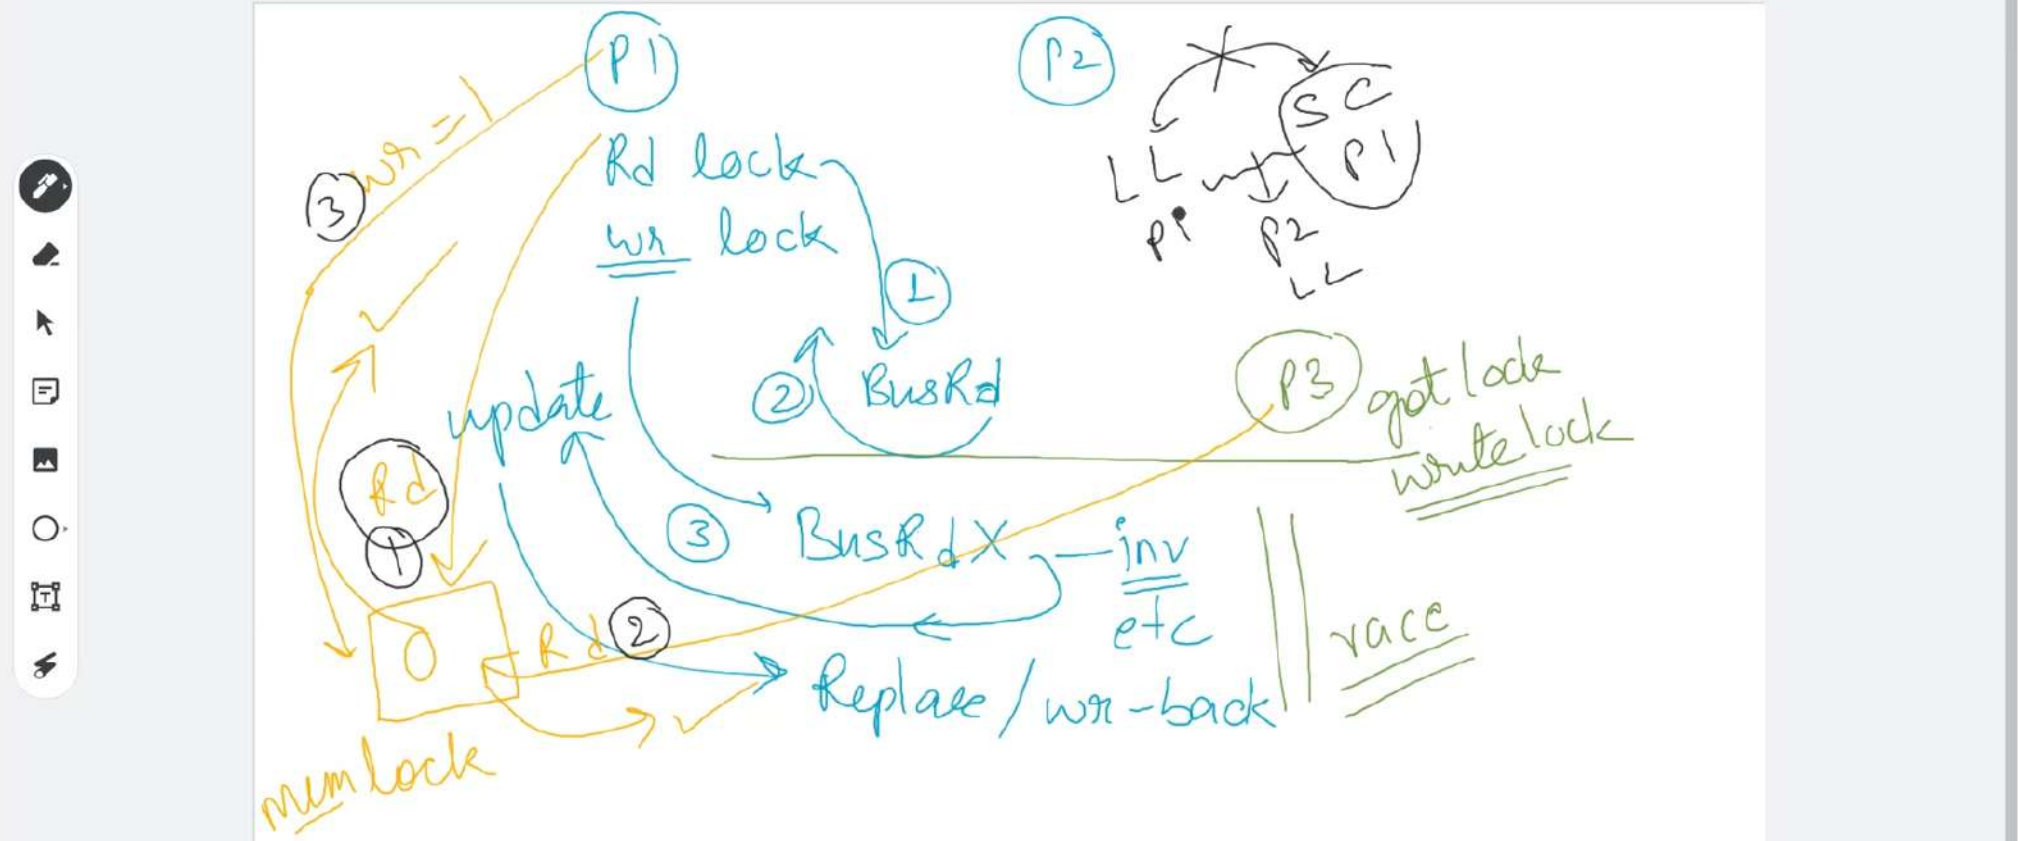 P1
P2
SC
P1
wr=1
3
Rd lock
LL
wr lock
P1
P2
LL
1
2
BusRd
P3
got lock
write lock
update
Rd
1
3
BusRdX
inv
etc
race
0
Rd
2
Replace/wr-back
mem lock